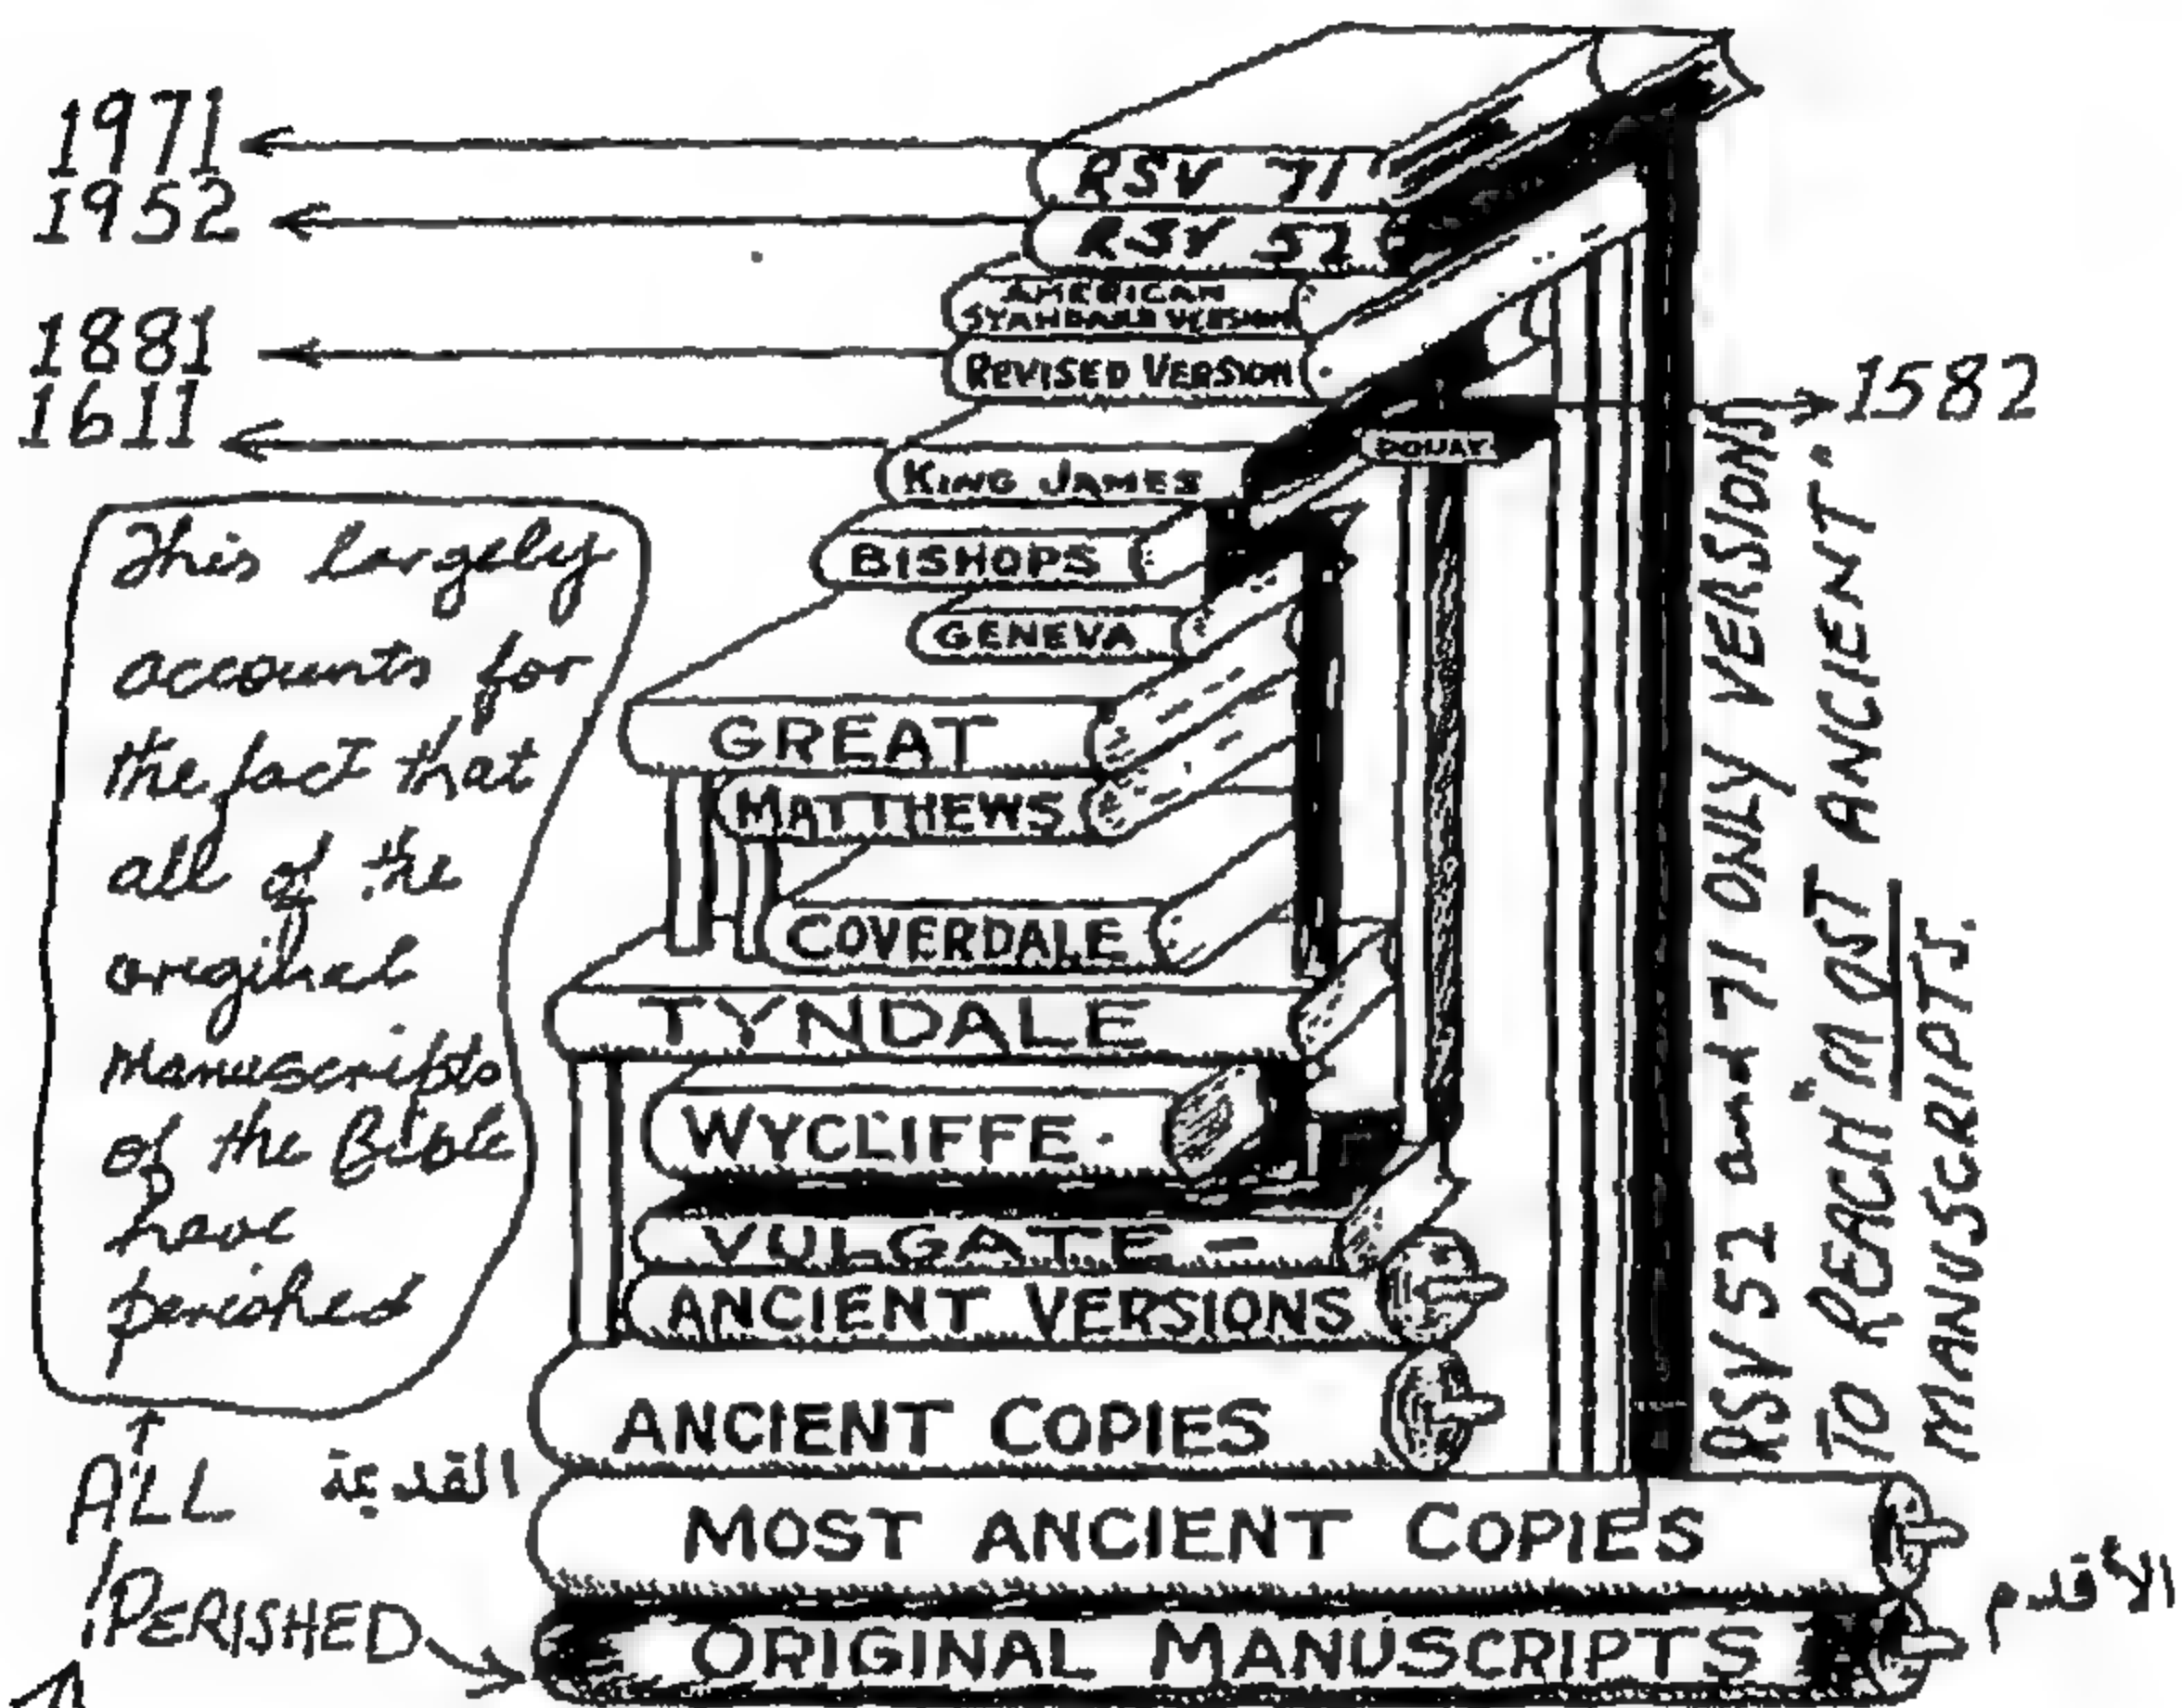 1971
1952
1881
1611
RSV 71
RSV 52
AMERICAN
STANDARD VERSION
REVISED VERSION
1582
DOUAY
KING JAMES
BISHOPS
GENEVA
GREAT
MATTHEWS
COVERDALE
TYNDALE
WYCLIFFE
VULGATE
ANCIENT VERSIONS
ANCIENT COPIES
MOST ANCIENT COPIES
ORIGINAL MANUSCRIPTS
This largely
accounts for
the fact that
all of the
original
manuscripts
of the Bible
have
perished
ALL
PERISHED
القديمة
الأقدم
RSV 52 and 71 ONLY VERSIONS
TO REACH "MOST ANCIENT"
MANUSCRIPTS.